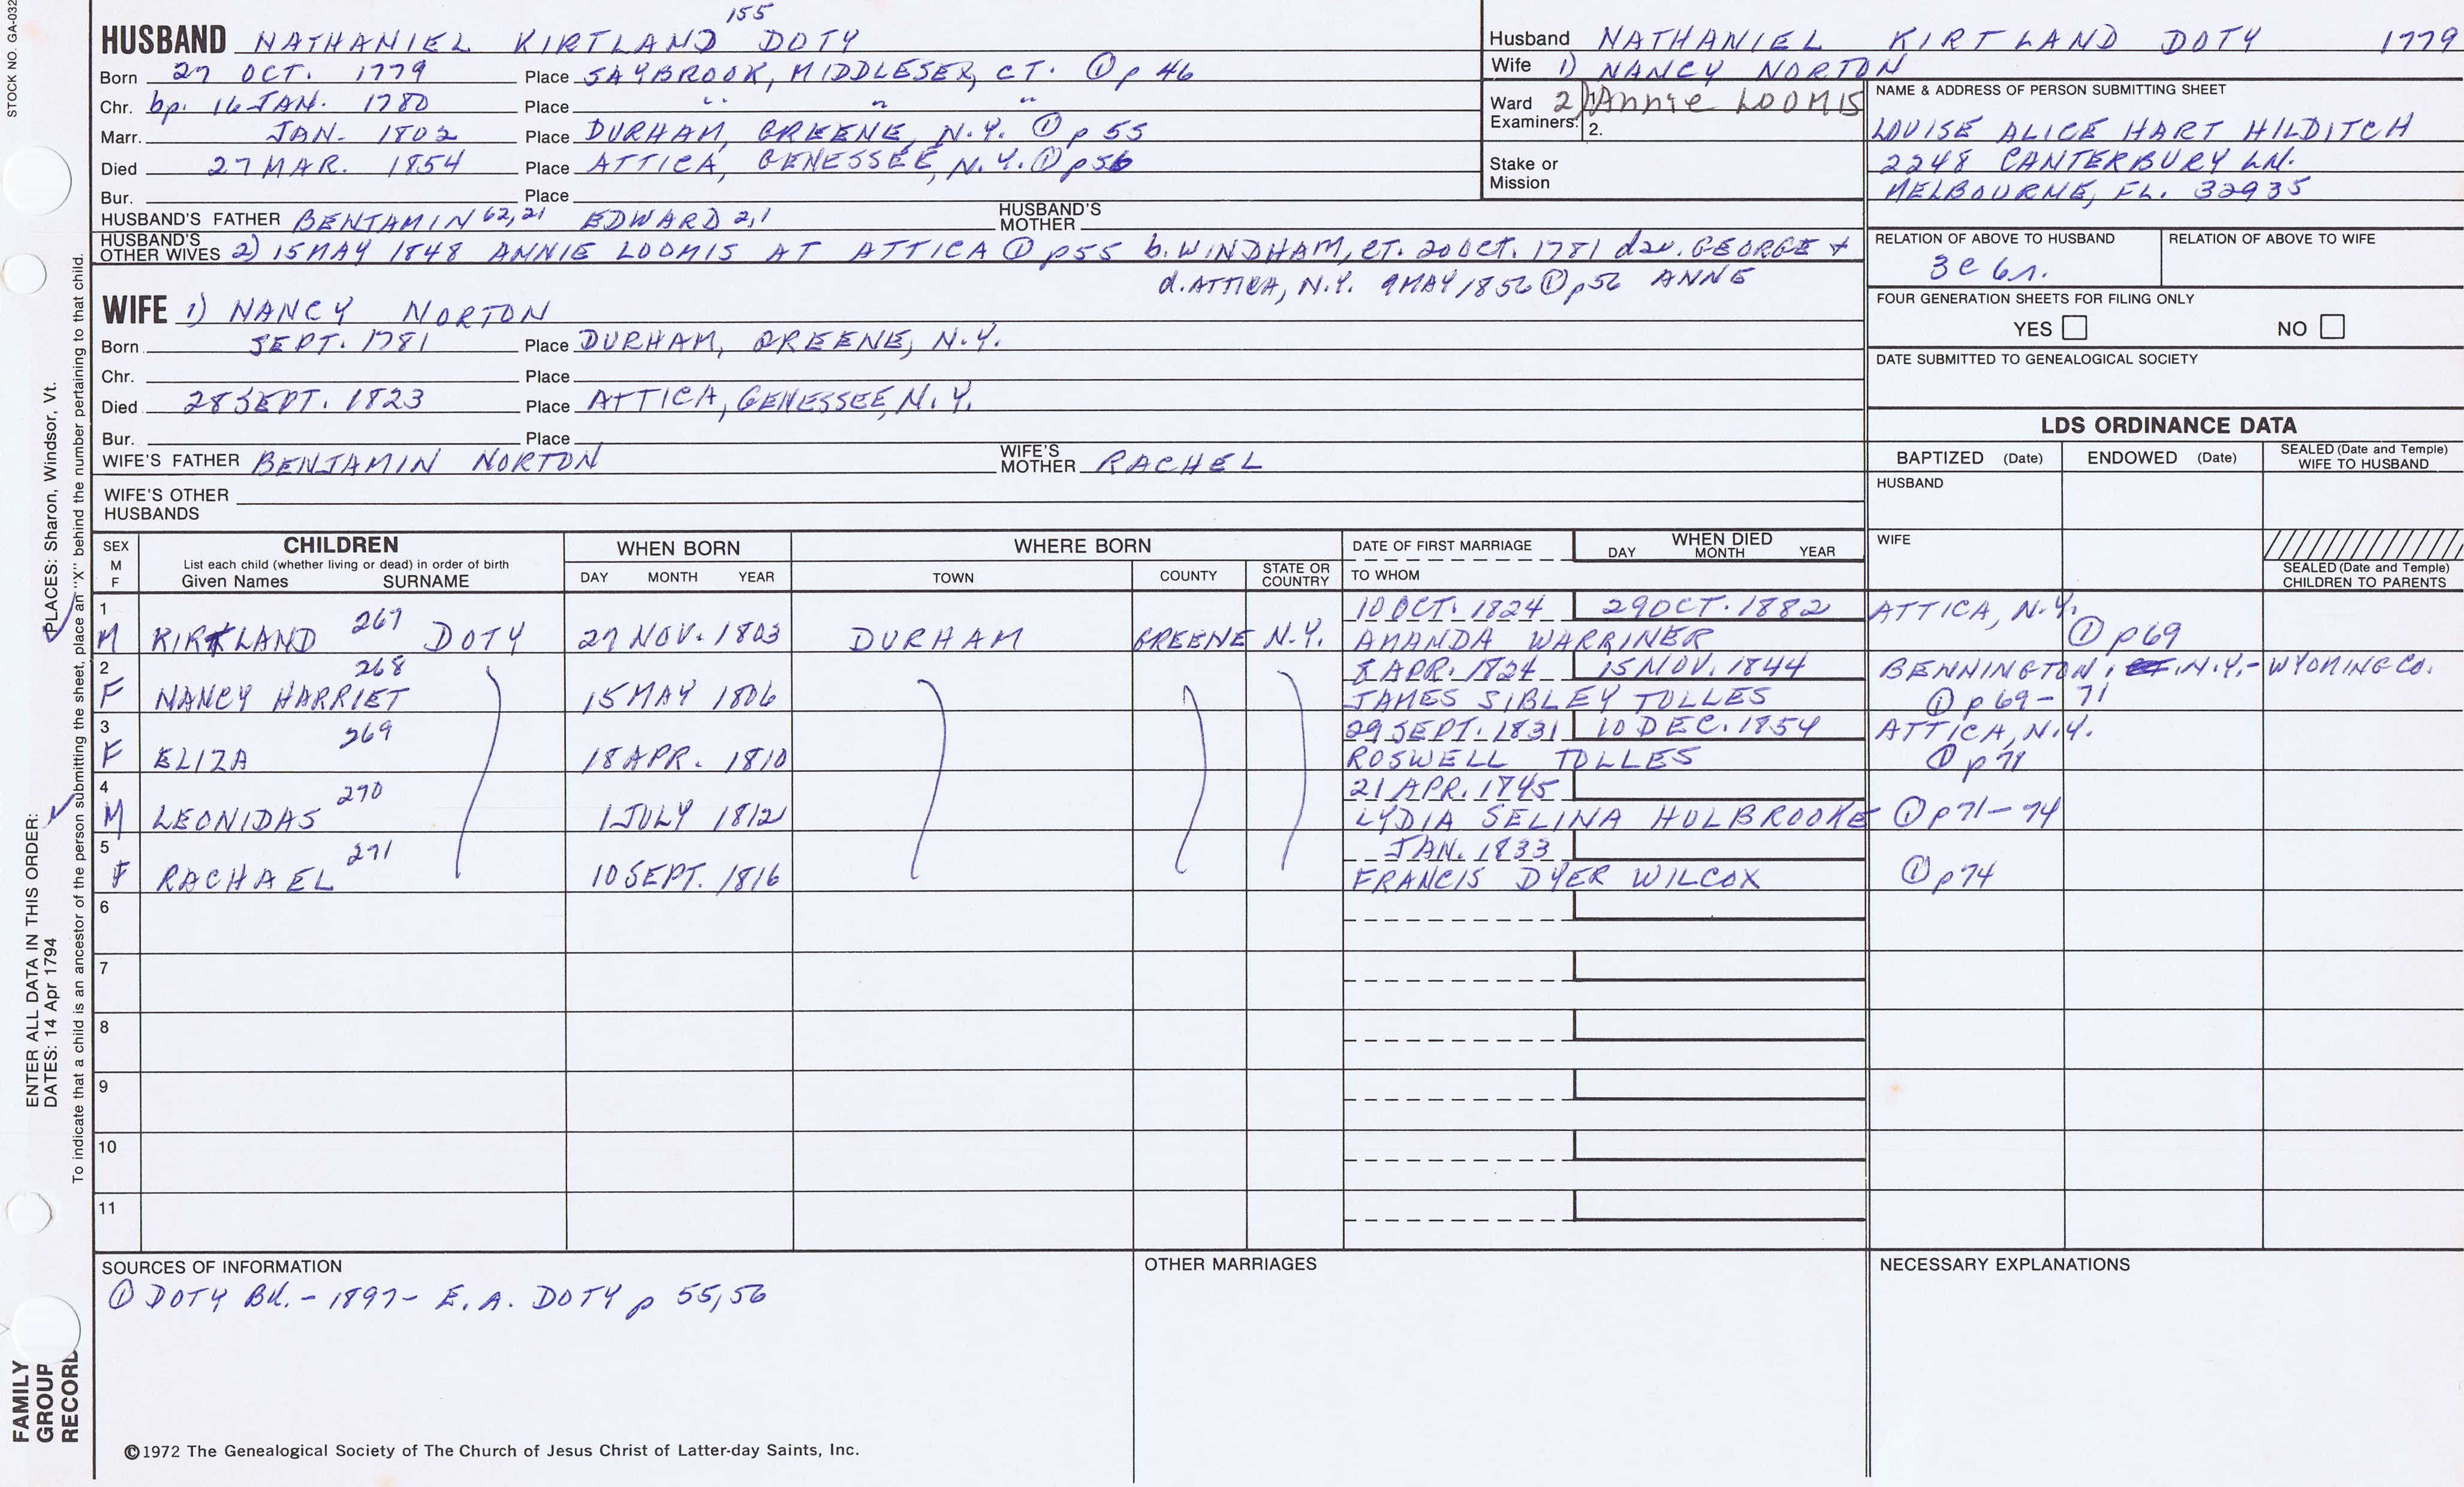 STOCK NO. GA-032
155
HUSBAND NATHANIEL KIRTLAND DOTY
Born 27 OCT. 1779 Place SAYBROOK, MIDDLESEX, CT. ① p 46
Chr. bp. 16 JAN. 1780 Place " " "
Marr. JAN- 1802 Place DURHAM, GREENE, N.Y. ① p 55
Died 27 MAR. 1854 Place ATTICA, GENESSEE, N.Y. ① p 56
Bur. Place
HUSBAND'S FATHER BENJAMIN 62,21 EDWARD 2,1 HUSBAND'S MOTHER
HUSBAND'S OTHER WIVES 2) 15 MAY 1848 ANNIE LOOMIS AT ATTICA ① p55 b. WINDHAM, CT. 20 OCT. 1781 dau. GEORGE +
d. ATTICA, N.Y. 9 MAY 1856 ① p56 ANNE
WIFE 1) NANCY NORTON
Born SEPT. 1781 Place DURHAM, GREENE, N.Y.
Chr. Place
Died 28 SEPT. 1823 Place ATTICA, GENESSEE, N.Y.
Bur. Place
WIFE'S FATHER BENJAMIN NORTON WIFE'S MOTHER RACHEL
WIFE'S OTHER HUSBANDS
Husband NATHANIEL KIRTLAND DOTY 1779
Wife 1) NANCY NORTON
Ward Examiners: 1. 2) Annie LOOMIS
2.
Stake or Mission
NAME & ADDRESS OF PERSON SUBMITTING SHEET
LOUISE ALICE HART HILDITCH
2248 CANTERBURY LN.
MELBOURNE, FL. 32935
RELATION OF ABOVE TO HUSBAND RELATION OF ABOVE TO WIFE
3c 6r.
FOUR GENERATION SHEETS FOR FILING ONLY
YES NO
DATE SUBMITTED TO GENEALOGICAL SOCIETY
LDS ORDINANCE DATA
BAPTIZED (Date) ENDOWED (Date) SEALED (Date and Temple) WIFE TO HUSBAND
HUSBAND
WIFE
SEALED (Date and Temple) CHILDREN TO PARENTS
SEX M F CHILDREN List each child (whether living or dead) in order of birth Given Names SURNAME
WHEN BORN DAY MONTH YEAR
WHERE BORN TOWN COUNTY STATE OR COUNTRY
DATE OF FIRST MARRIAGE TO WHOM
WHEN DIED DAY MONTH YEAR
1 267 10 OCT. 1824 29 OCT. 1882 ATTICA, N.Y.
M KIRTLAND DOTY 27 NOV. 1803 DURHAM GREENE N.Y. AMANDA WARRINER ① p69
2 268 8 APR. 1824 15 NOV. 1844 BENNINGTON, N.Y.- WYOMING CO.
F NANCY HARRIET 15 MAY 1806 JAMES SIBLEY TOLLES ① p 69-71
3 269 29 SEPT. 1831 10 DEC. 1854 ATTICA, N.Y.
F ELIZA 18 APR. 1810 ROSWELL TOLLES ① p 71
4 270 21 APR. 1845
M LEONIDAS 1 JULY 1812 LYDIA SELINA HOLBROOKE ① p71-74
5 271 JAN. 1833
F RACHAEL 10 SEPT. 1816 FRANCIS DYER WILCOX ① p74
6
7
8
9
10
11
SOURCES OF INFORMATION
① DOTY BK. - 1897- E. A. DOTY p 55,56
OTHER MARRIAGES
NECESSARY EXPLANATIONS
©1972 The Genealogical Society of The Church of Jesus Christ of Latter-day Saints, Inc.
FAMILY GROUP RECORD
ENTER ALL DATA IN THIS ORDER:
DATES: 14 Apr 1794 PLACES: Sharon, Windsor, Vt.
To indicate that a child is an ancestor of the person submitting the sheet, place an "X" behind the number pertaining to that child.